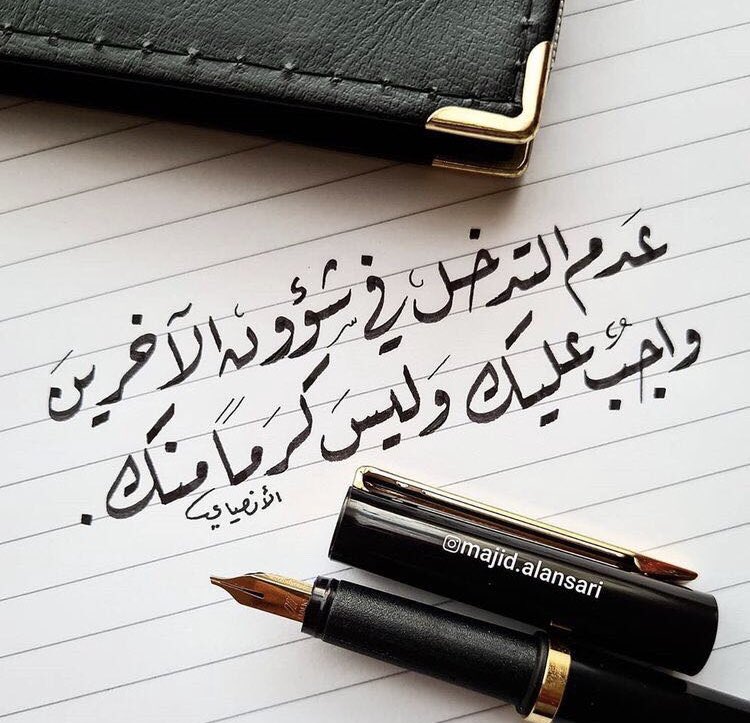 عَدم التدخل في شؤون الآخرين
واجبٌ عليك وَليسَ كَرَماً منك.
الأنصاري
@majid.alansari